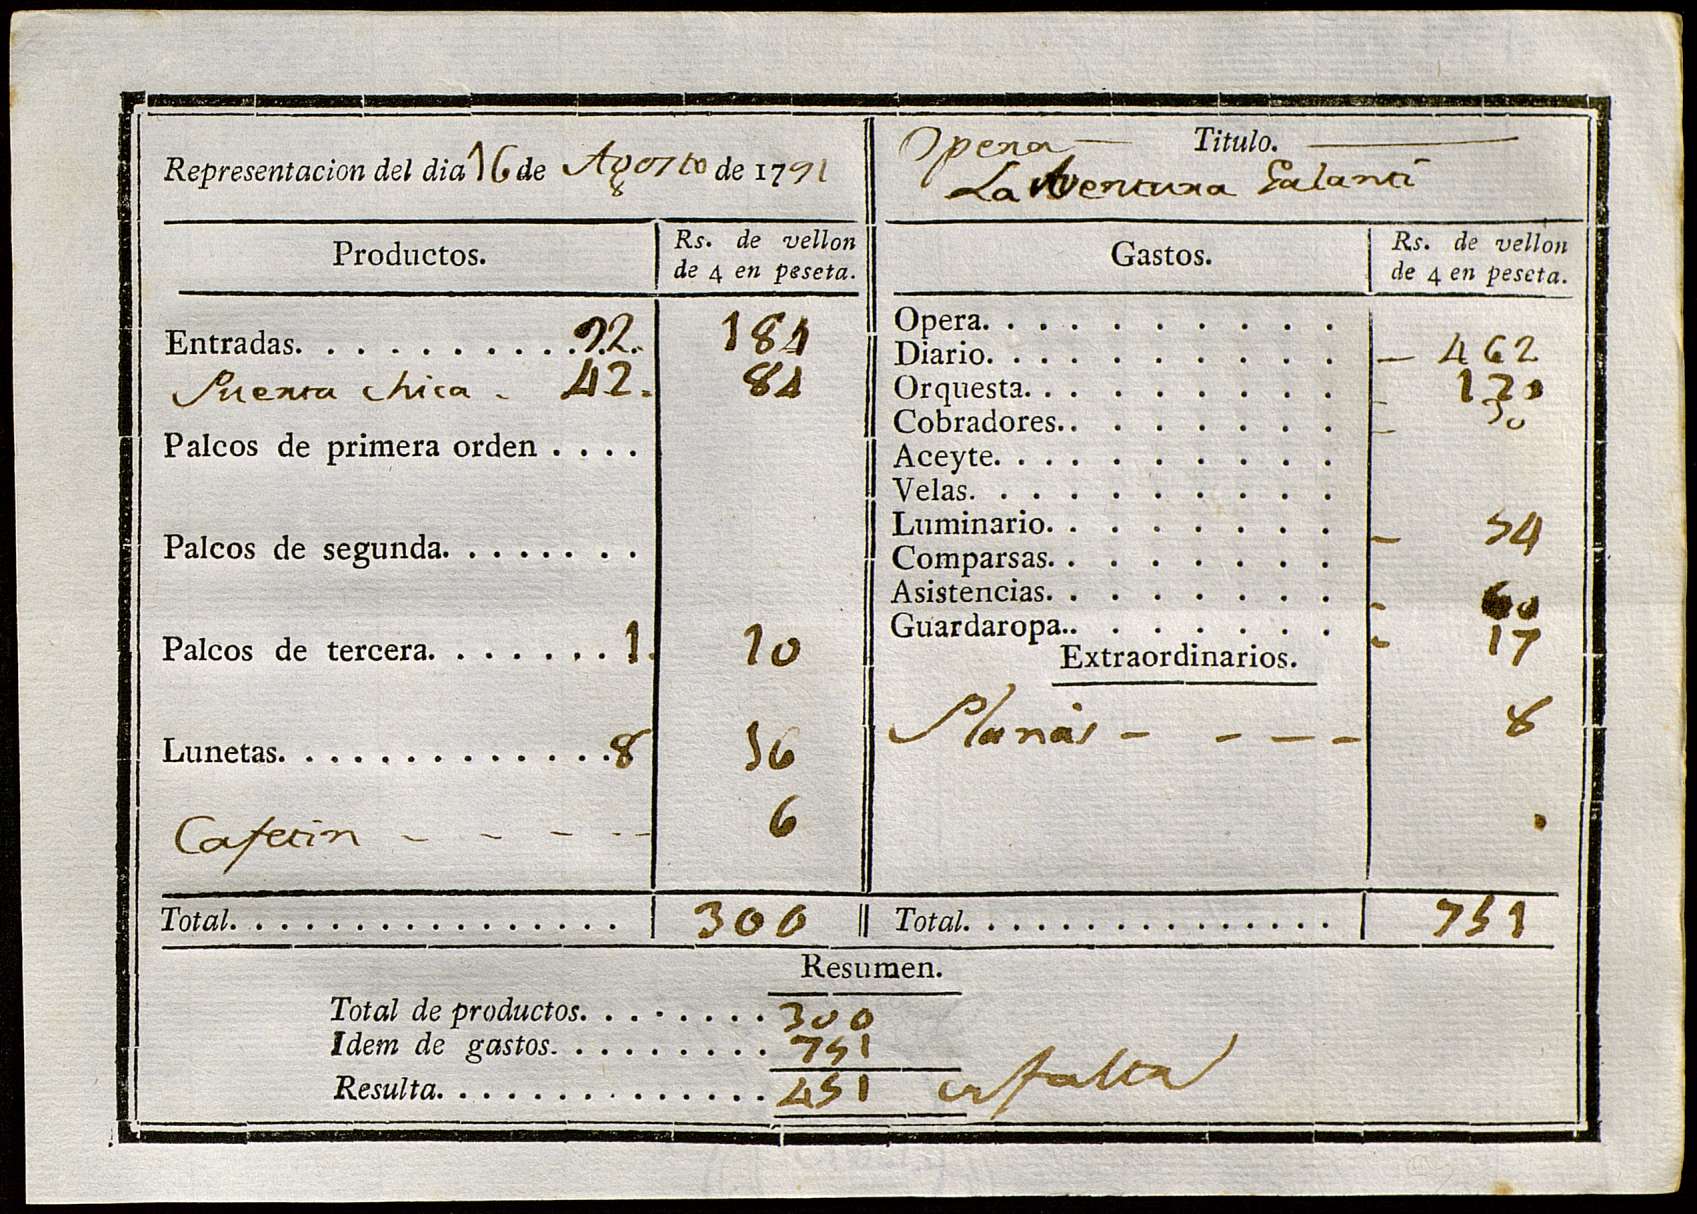 Representacion del dia 16 de Agosto de 1791
Productos.
Rs. de vellon
de 4 en peseta.
Entradas. . . . . . . . . . 92. 184
Puerta chica - 42. 84
Palcos de primera orden . . . .
Palcos de segunda. . . . . . . .
Palcos de tercera. . . . . . . 1. 10
Lunetas. . . . . . . . . . . . . 8 16
Cafetin - - - - 6
Total. . . . . . . . . . . . . . . . 300
Opera — Titulo. —
La Aventura Galanti
Gastos.
Rs. de vellon
de 4 en peseta.
Opera. . . . . . . . .
Diario. . . . . . . . . — 462
Orquesta. . . . . . . . - 120
Cobradores.. . . . . . . - 30
Aceyte. . . . . . . . .
Velas. . . . . . . . . .
Luminario. . . . . . . . - 54
Comparsas. . . . . . . .
Asistencias. . . . . . . . - 60
Guardaropa.. . . . . . . - 17
Extraordinarios.
- - - - 8
Total. . . . . . . . . . . . . . . 751
Resumen.
Total de productos. . . . . . . . 300
Idem de gastos. . . . . . . . . 751
Resulta. . . . . . . . . . . . . . 451 falta